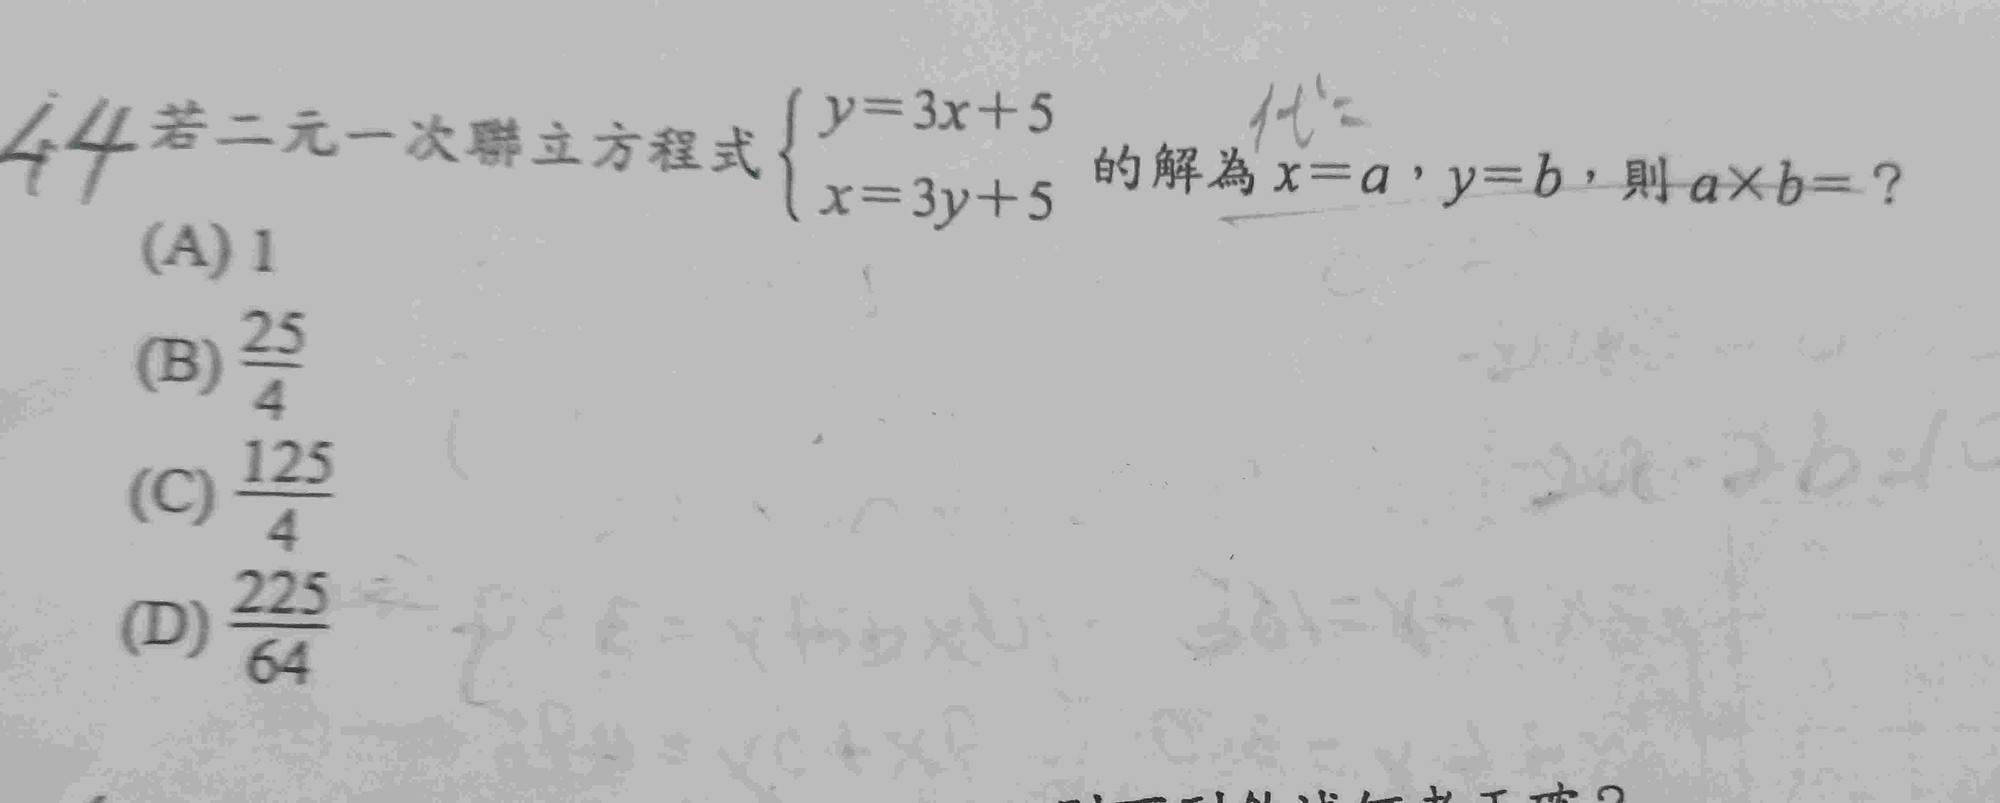 44 若二元一次聯立方程式 { y=3x+5 x=3y+5 的解為 x=a，y=b，則 a×b=？
代=
(A) 1
(B) 25/4
(C) 125/4
(D) 225/64